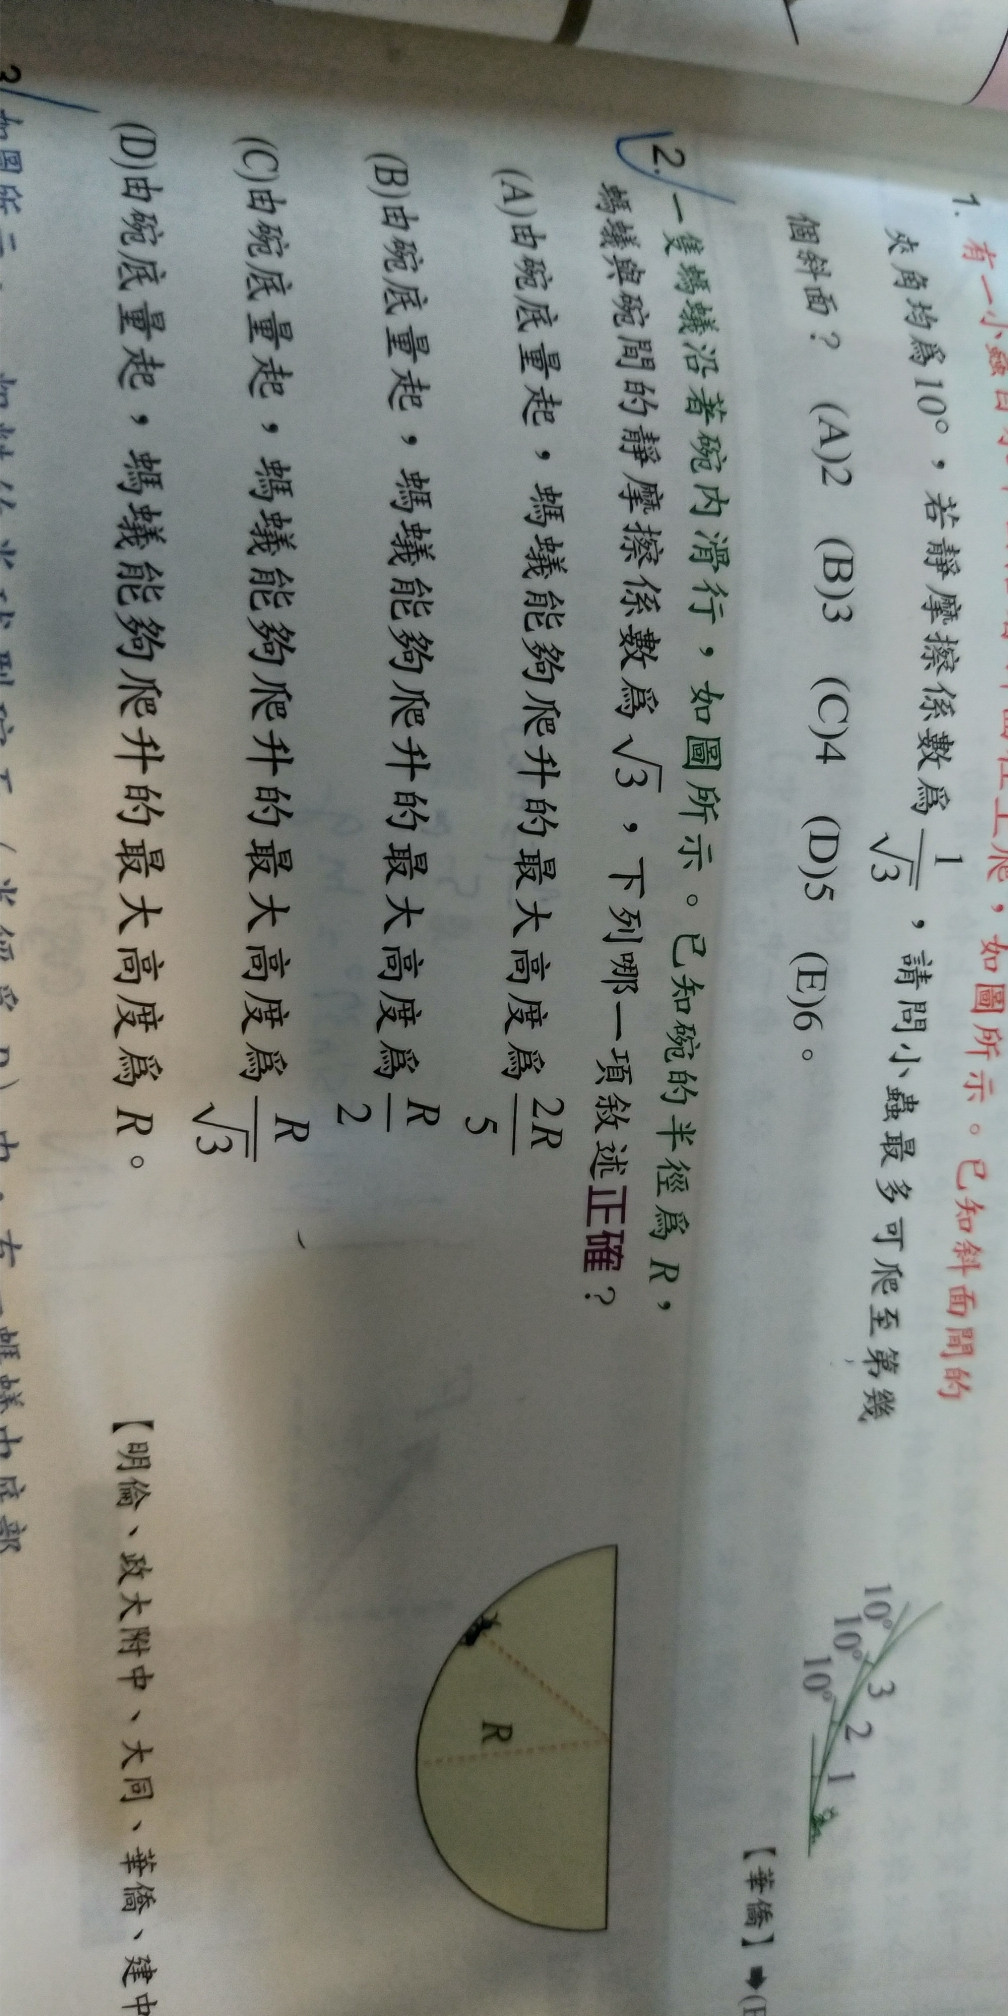 1. 有一小蟲自水平 如圖所示。已知斜面間的
夾角均為10°，若靜摩擦係數為 1/√3 ，請問小蟲最多可爬至第幾
個斜面？ (A)2 (B)3 (C)4 (D)5 (E)6。
【華僑】➡(E
10°
10°
10°
3
2
1
2. 一隻螞蟻沿著碗內滑行，如圖所示。已知碗的半徑為 R，
螞蟻與碗間的靜摩擦係數為 √3 ，下列哪一項敘述正確？
(A)由碗底量起，螞蟻能夠爬升的最大高度為 2R/5
(B)由碗底量起，螞蟻能夠爬升的最大高度為 R/2
(C)由碗底量起，螞蟻能夠爬升的最大高度為 R/√3
(D)由碗底量起，螞蟻能夠爬升的最大高度為 R。
R
【明倫、政大附中、大同、華僑、建中
3. 如圖所示